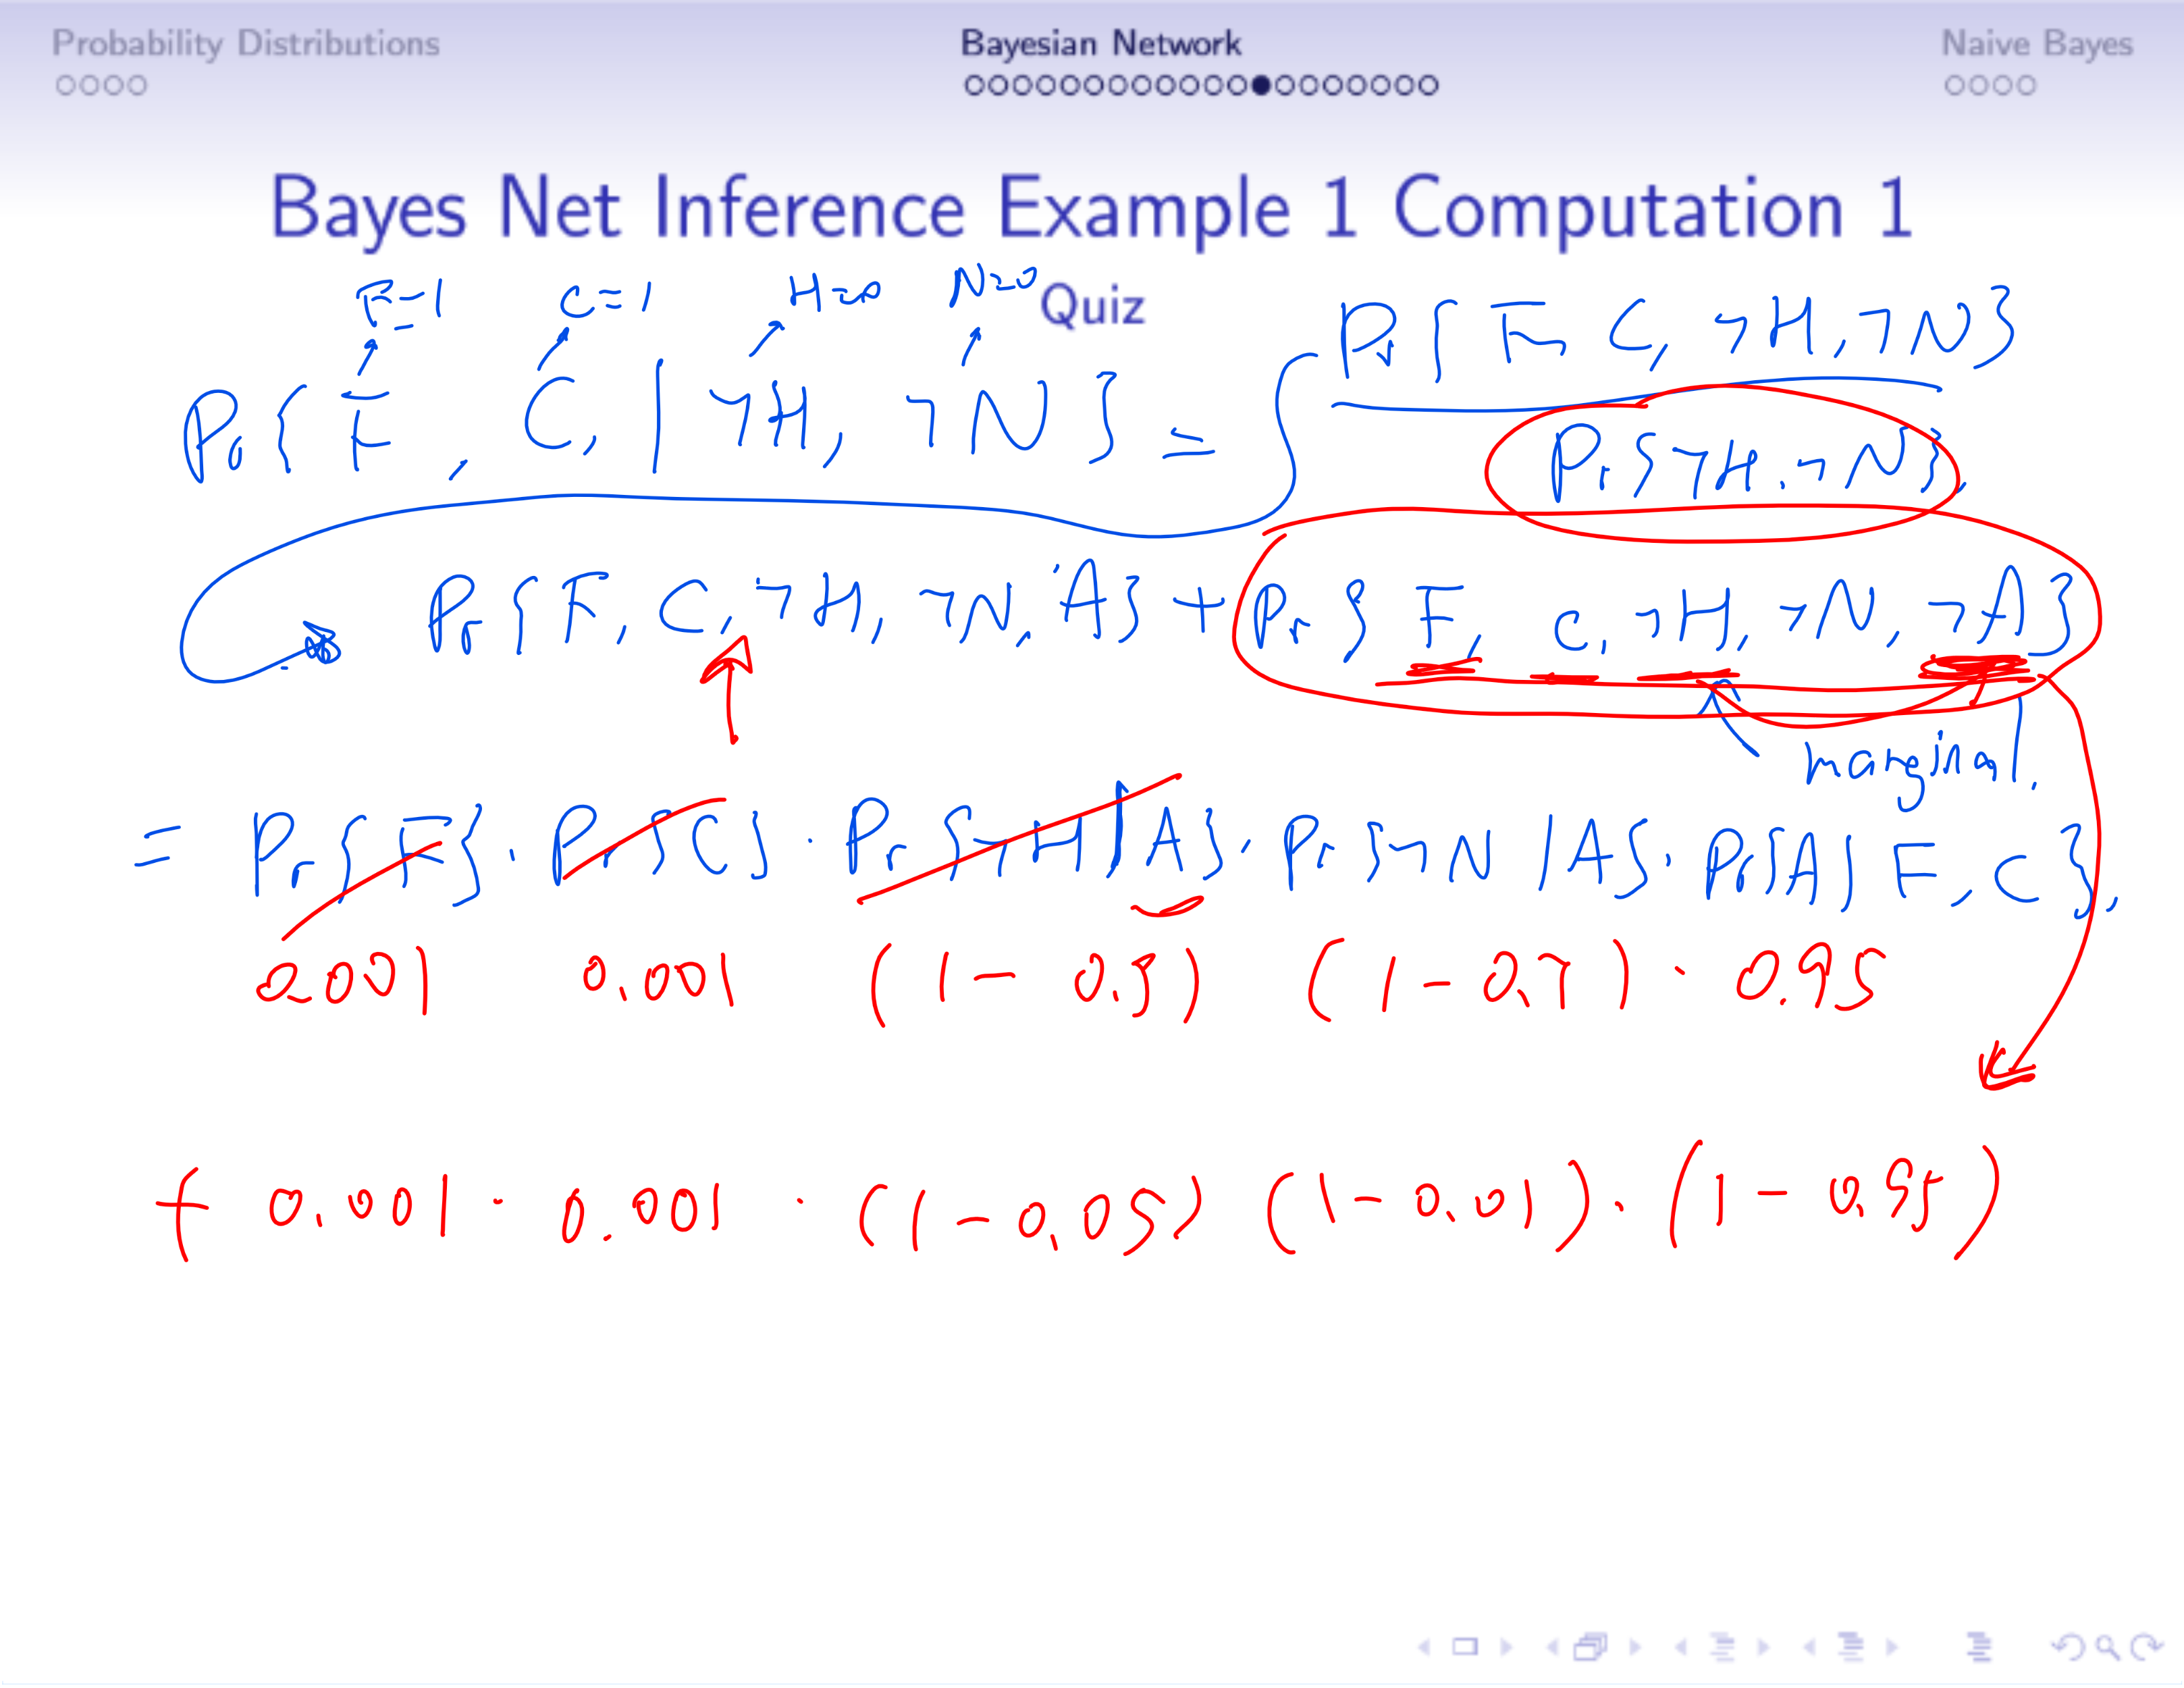 Probability Distributions Bayesian Network Naive Bayes
Bayes Net Inference Example 1 Computation 1
Quiz
F=1 C=1 H=0 N=0
Pr{F, C, | ¬H, ¬N} = Pr{F, C, ¬H, ¬N}
Pr{¬H, ¬N}
Pr{F, C, ¬H, ¬N, A} + Pr{F, C, ¬H, ¬N, ¬A}
marginal.
= Pr{F} · Pr{C} · Pr{¬H|A} · Pr{¬N|A} · Pr{A|F, C},
0.001 0.001 (1-0.9) (1-0.7) · 0.95
+ 0.001 · 0.001 · (1-0.05) (1-0.01) · (1-0.95)